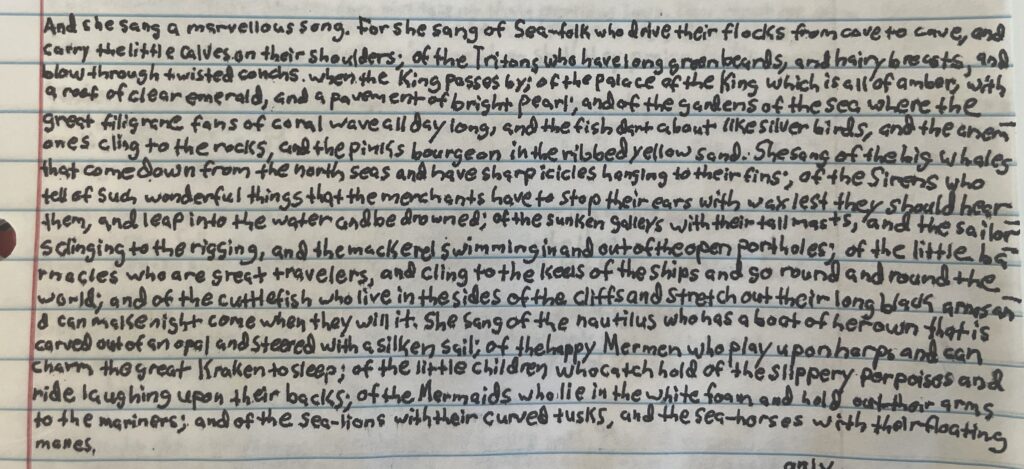 And she sang a marvellous song. For she sang of Sea-folk who drive their flocks from cave to cave, and
carry the little calves on their shoulders; of the Tritons who have long green beards, and hairy breasts, and
blow through twisted conchs. when the King passes by; of the palace of the King which is all of amber, with
a roof of clear emerald, and a pavement of bright pearl; and of the gardens of the sea where the
great filigrane fans of coral wave all day long, and the fish dart about like silver birds, and the anem-
ones cling to the rocks, and the pinks bourgeon in the ribbed yellow sand. She sang of the big whales
that come down from the north seas and have sharp icicles hanging to their fins; of the Sirens who
tell of such wonderful things that the merchants have to stop their ears with wax lest they should hear
them, and leap into the water and be drowned; of the sunken galleys with their tall masts, and the sailor-
s clinging to the rigging, and the mackerel swimming in and out of the open portholes; of the little ba-
rnacles who are great travelers, and cling to the keels of the ships and go round and round the
world; and of the cuttlefish who live in the sides of the cliffs and stretch out their long black arms an-
d can make night come when they will it. She sang of the nautilus who has a boat of her own that is
carved out of an opal and steered with a silken sail; of the happy Mermen who play upon harps and can
charm the great Kraken to sleep; of the little children who catch hold of the slippery porpoises and
ride laughing upon their backs; of the Mermaids who lie in the white foam and hold out their arms
to the mariners; and of the sea-lions with their curved tusks, and the sea-horses with their floating
manes.
only